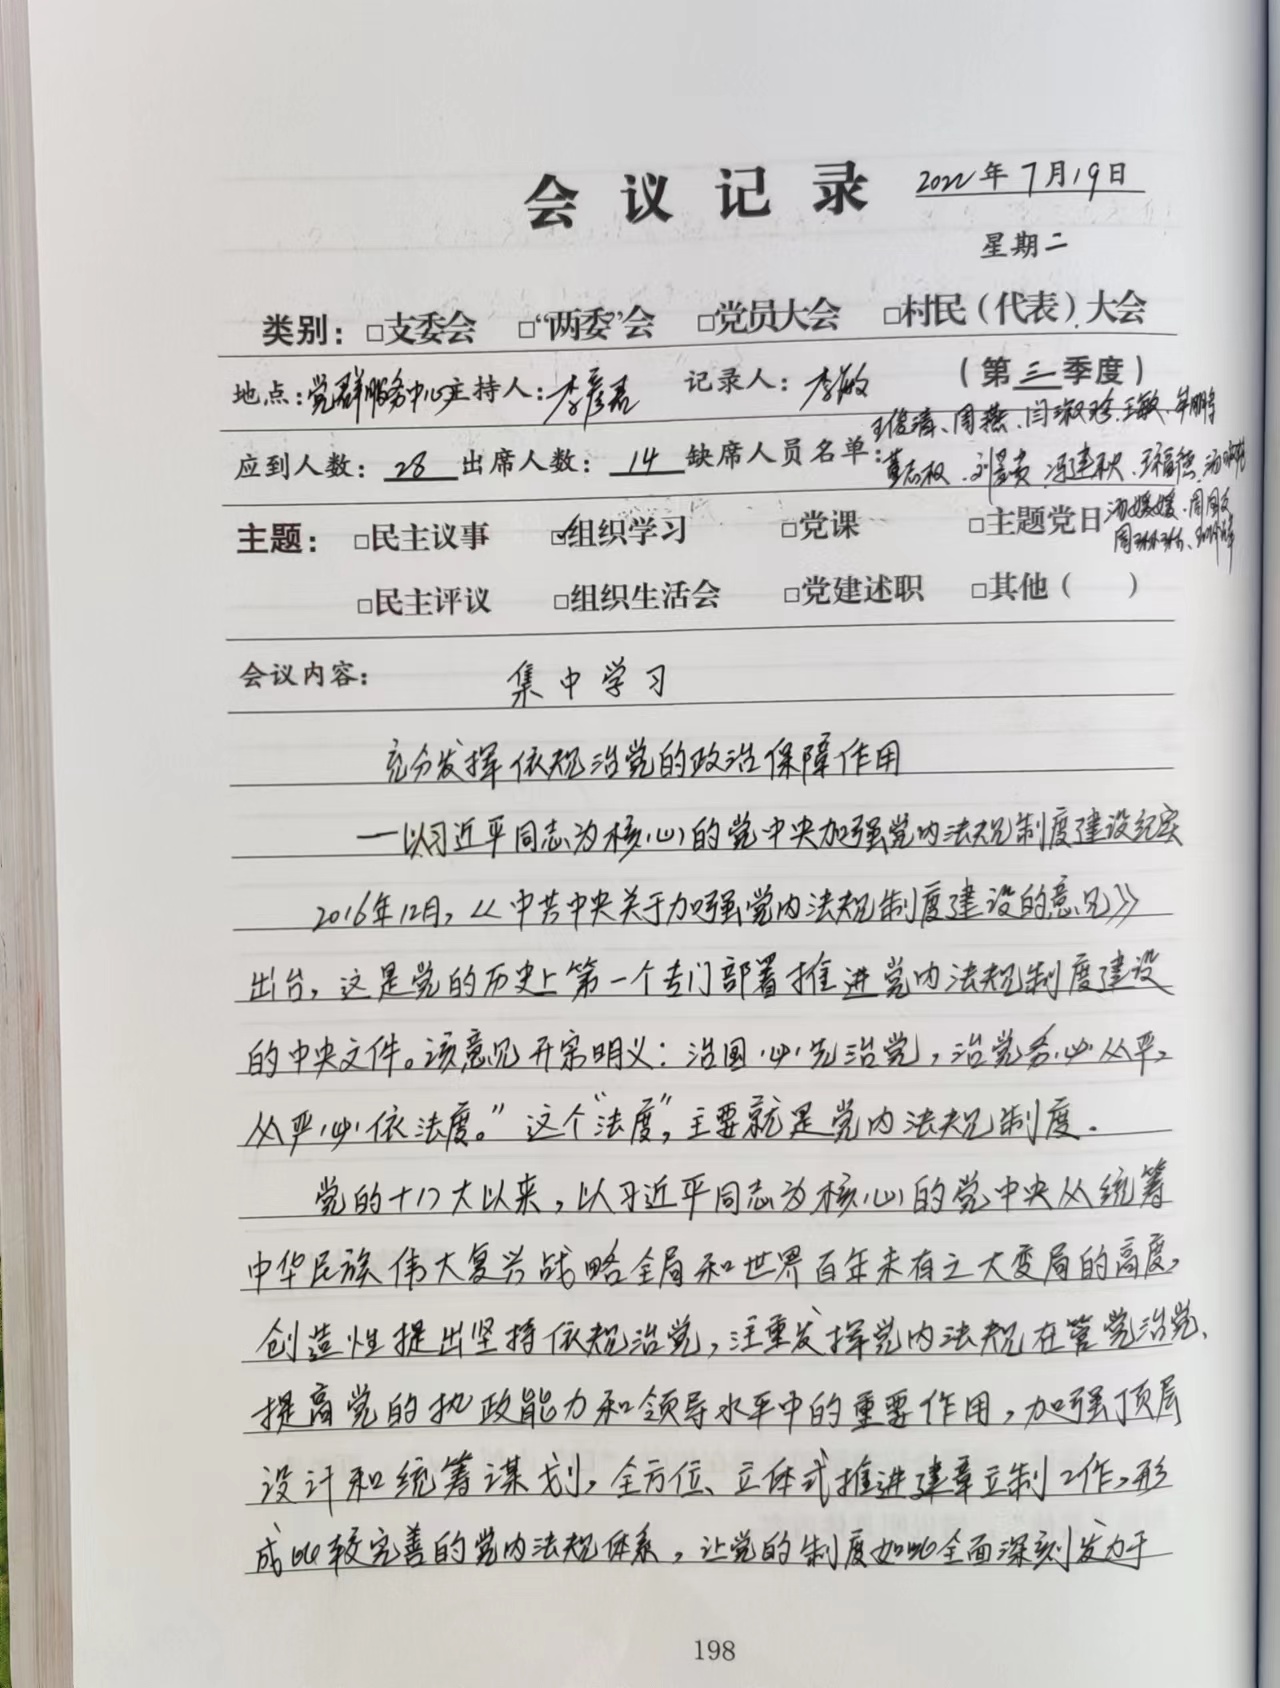 会议记录 2022年7月19日
星期二
类别：□支委会 □“两委”会 □党员大会 □村民（代表）大会
地点：党群服务中心 主持人：李彦君 记录人：李敏 （第三季度）
王俊清、周燕、闫淑珍、王敏、
应到人数：28 出席人数：14 缺席人员名单：董志权、刘景贵、冯建秋、王福德、
主题：□民主议事 ☑组织学习 □党课 □主题党日 汤媛媛、周国文
周琳琳、
□民主评议 □组织生活会 □党建述职 □其他（ ）
会议内容： 集中学习
充分发挥依规治党的政治保障作用
—以习近平同志为核心的党中央加强党内法规制度建设纪实
2016年12月，《中共中央关于加强党内法规制度建设的意见》
出台，这是党的历史上第一个专门部署推进党内法规制度建设
的中央文件。该意见开宗明义：治国必先治党，治党务必从严，
从严必依法度。”这个“法度”，主要就是党内法规制度.
党的十八大以来，以习近平同志为核心的党中央从统筹
中华民族伟大复兴战略全局和世界百年未有之大变局的高度，
创造性提出坚持依规治党，注重发挥党内法规在管党治党、
提高党的执政能力和领导水平中的重要作用，加强顶层
设计和统筹谋划，全方位、立体式推进建章立制工作，形
成比较完善的党内法规体系，让党的制度如此全面深刻发力于
198